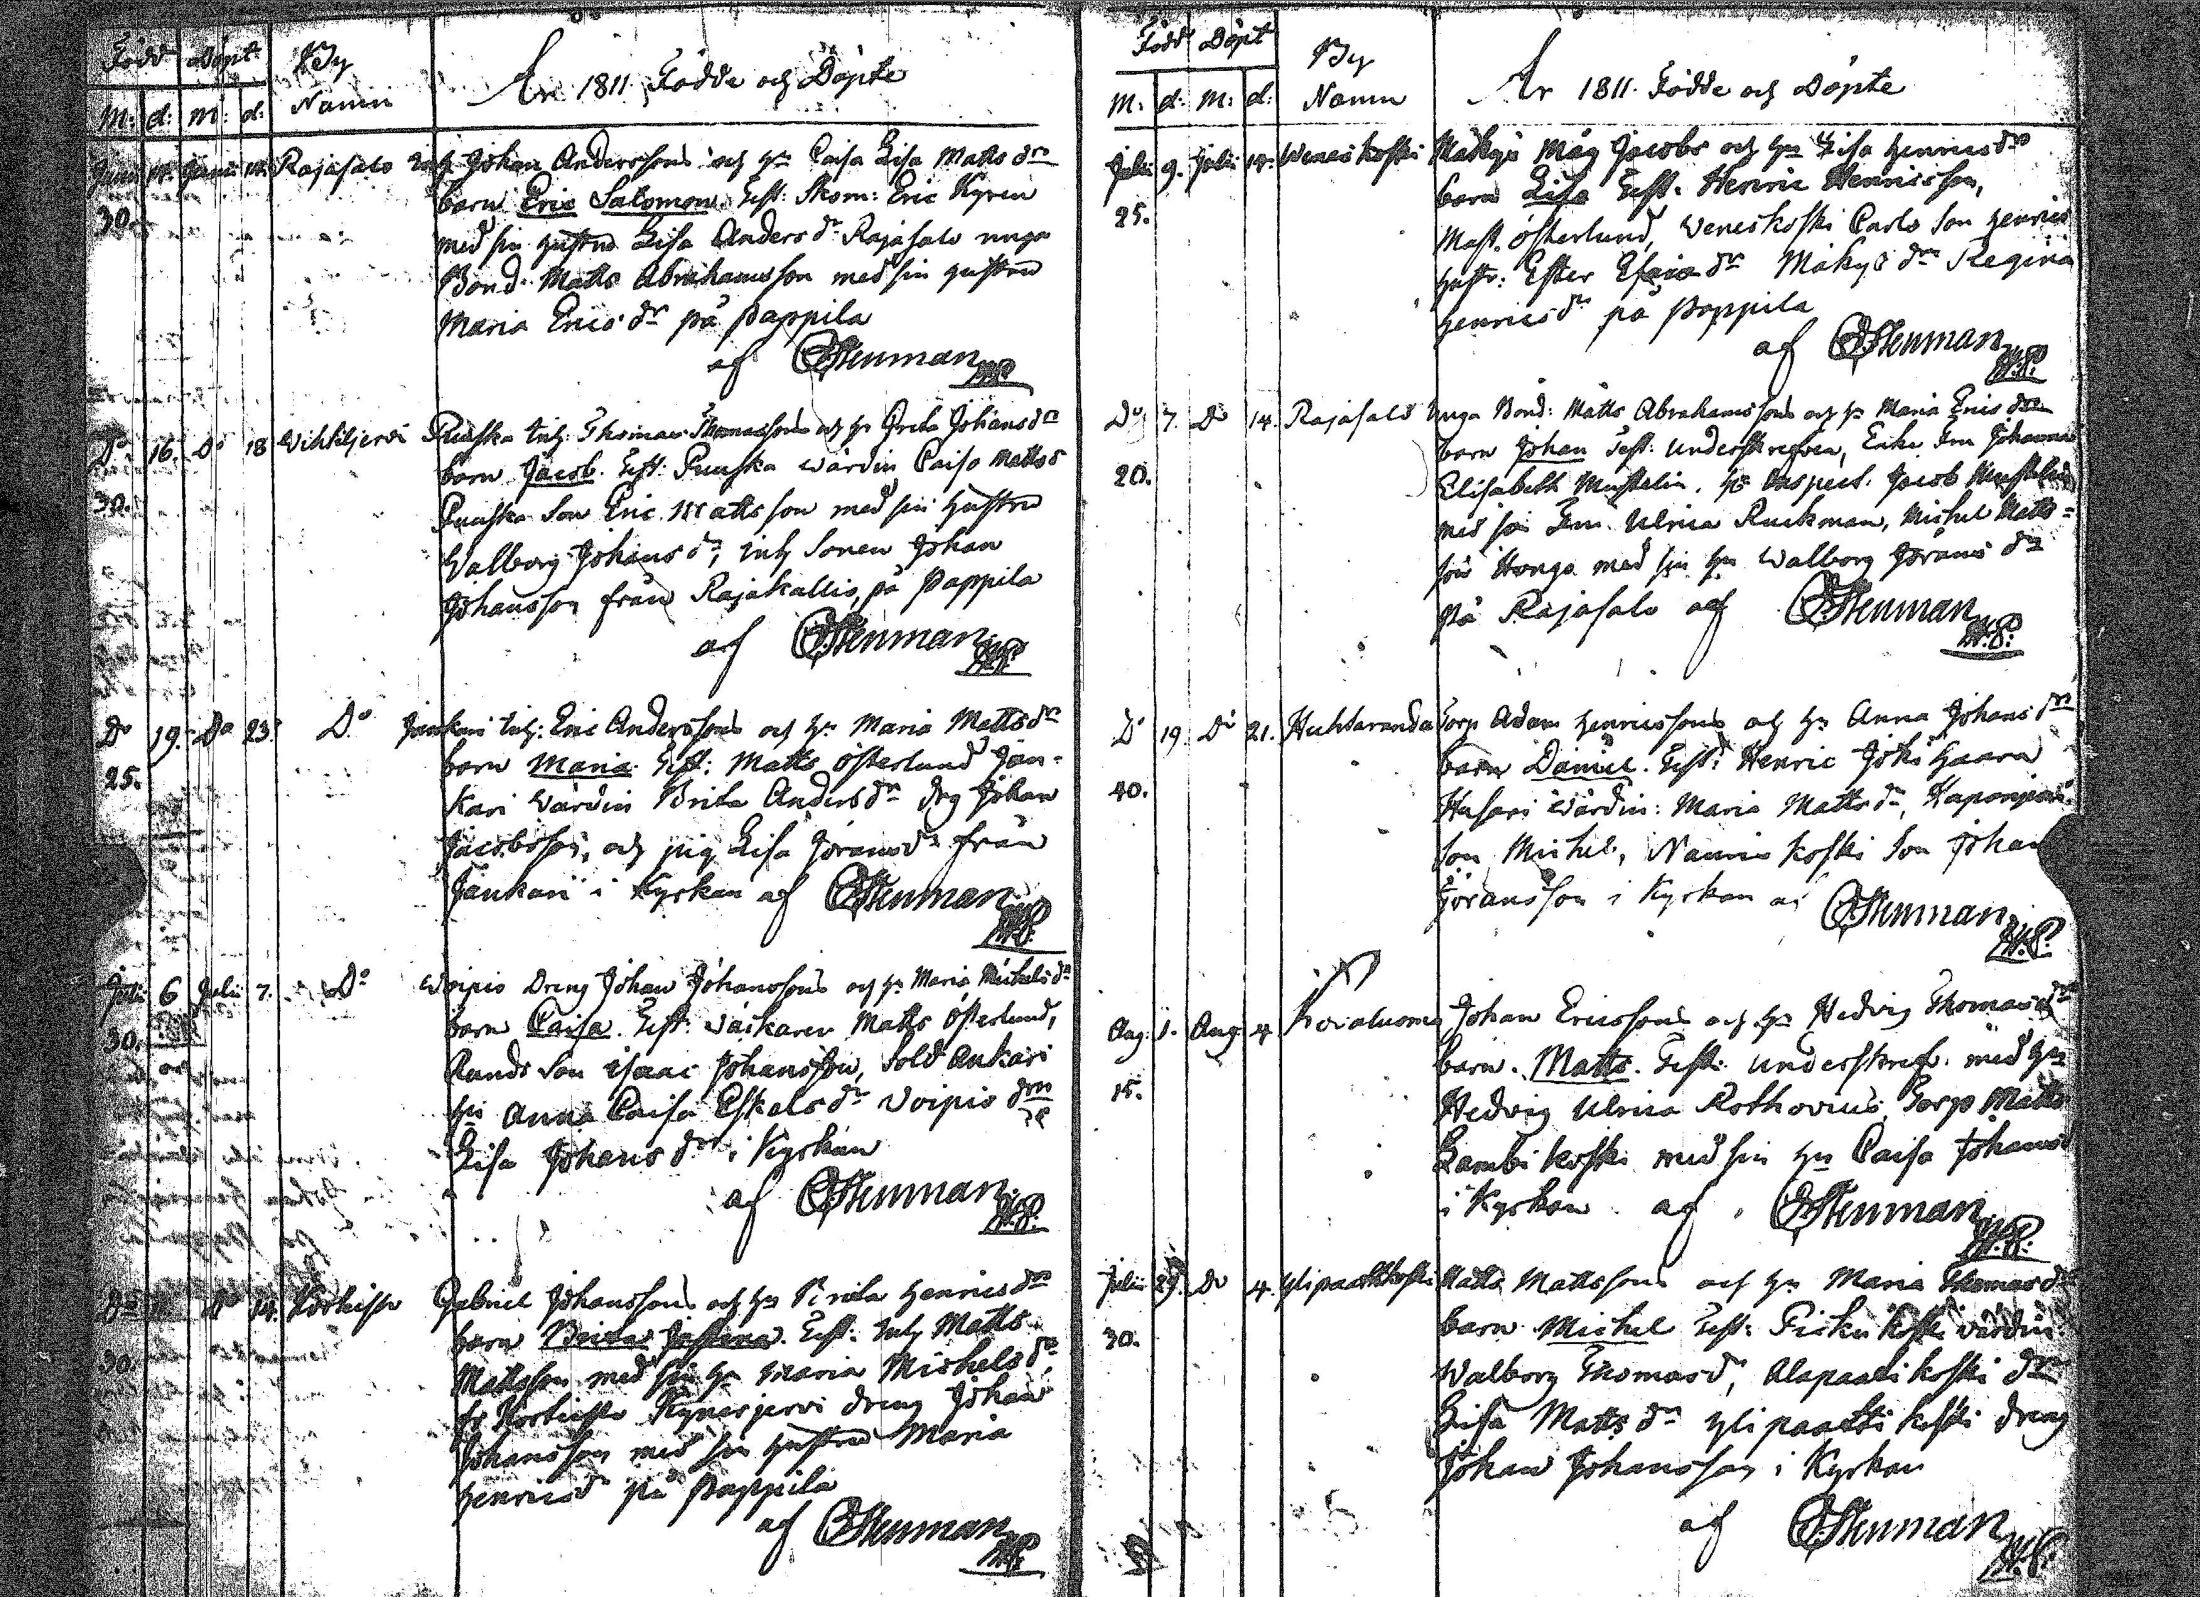 Född Döpt By
M: d: m: d: Namn
År 1811. Födde och Döpte
Junii 14. Junii 14. Rajasalo Inh. Johan Anderssons och h:u Caisa Lisa Matts dr
30.
barn Eric Salomon. Test: Skom: Eric Kyren
med sin hustru Lisa Anders dr Rajasalo unga
Bond. Matts Abrahamsson med sin hustru
Maria Erics dr på Pappila
af Stenman
D:o 16. D:o 18 Wihtiljervi Ruuska Inh: Thomas Thomassons och h:u Greta Johans dr
30.
barn Jacob. Test: Ruuska wärdin Caisa Matts d
Ruuska Son Eric Mattsson med sin hustru
Walborg Johans dr, inh Sonen Johan
Johansson från Rajakallio, på Pappila
af Stenman
D:o 19. D:o 23. D:o Jaukari Inh: Eric Anderssons och h:u Maria Matts dr
25.
barn Maria. Test: Matts Österlund Jau-
kari wärdin Brita Anders dr drg Johan
Jacobsson, och pig Lisa Jörans dr från
Jaukari i Kyrkan af Stenman
Julii 6 Julii 7. D:o Woipio Dreng Johan Johanssons och h:u Maria Michels dr
30.
barn Caisa. Test: Matts Österlund,
Rands Son Isaac Johansson, Sold Ankari
h:u Anna Caisa Eskels dr Woipio dr
Lisa Johans dr i Kyrkan
af Stenman
D:o D:o 14. Gabriel Johanssons och h:u Brita Henrics dr
30.
barn Brita Justina. Test: Inh Matts
Mattsson med sin h:u Maria Michels dr,
Kynesjervi dreng Johan
Johansson med sin hustru Maria
Henrics dr på Pappila
af Stenman
Född Döpt By
M: d: M: d: Namn
År 1811. Födde och Döpte
Julii 9. Julii 14. Weneskoski Mäkys Måg Jacobs och h:u Lisa Henrics dr
25.
barn Lisa Test: Henric Henricsson,
Matt. Österlund, Weneskoski Carls Son Henrics
hustr: Ester Esaie dr Mäkys dr Regina
Henrics dr på Pappila
af Stenman
D:o 7. D:o 14. Rajasalo Unga Bond: Matts Abrahamssons och h:u Maria Erics dr
20.
barn Johan Test: Underskrefven, Enke Fru Johanna
Elisabeth Mustelin. Inspect. Jacob
med sin Fru Ulrica Ruckman, Michel Matts-
son Honga med sin h:u Walborg Jörans dr
på Rajasalo af Stenman
D:o 19. D:o 21. Huhtaranda Torp Adam Henricssons och h:u Anna Johans dr
40.
barn Daniel. Test: Henric Johs Haara
Husari Wärdin: Maria Matts dr,
Son Michel, Son Johan
Göransson i Kyrkan af Stenman
Aug. 1. Aug. 4. Kovaluoma Johan Ericssons och h:u Hedvig Thomas dr
15.
barn. Matts. Test: underskref. med h:u
Hedvig Ulrica Rothovius, Torp Matts
Lambikoski med sin h:u Caisa Johans d
i Kyrkan af Stenman
Julii 29. D:o 4. Ylipaattikoski Matts Mattssons och h:u Maria Thomas dr
30.
barn Michel Test: wärdin
Walborg Thomas dr, Alapaattikoski dr
Lisa Matts dr Ylipaattikoski dreng
Johan Johansson i Kyrkan
af Stenman